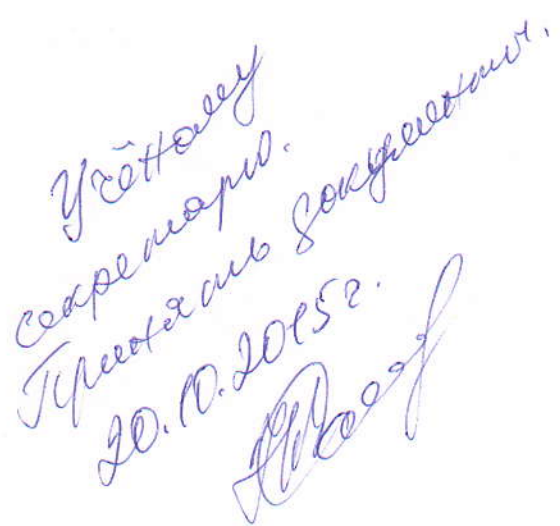 Учёному
секретарю.
Принять документы.
20.10.2015г.